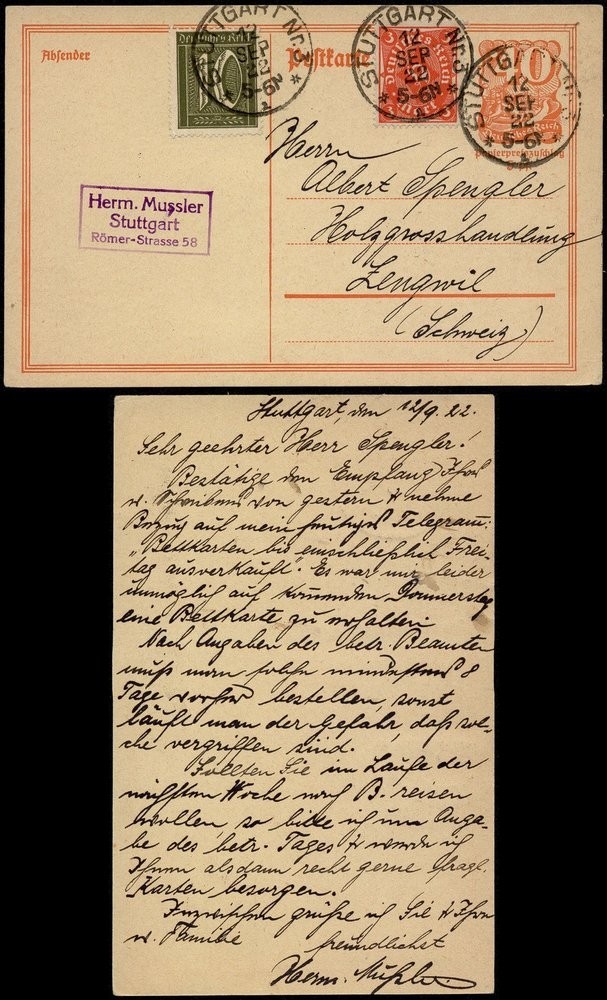 Absender
Postkarte
Deutsches Reich
50
STUTTGART Nr.3
12
SEP
22
5-6N
STUTTGART Nr.3
12
SEP
22
5-6N
Deutsches Reich
STUTTGART Nr.3
12
SEP
22
5-6N
Papierpreiszuschlag
Herm. Mussler
Stuttgart
Römer-Strasse 58
Herrn
Albert Spengler
Holzgrosshandlung
Lengwil
(Schweiz)
Stuttgart, den 12/9. 22.
Sehr geehrter Herr Spengler!
Bestätige den Empfang Ihres
w. Schreibens von gestern & nehme
Bezug auf mein heutiges Telegram:
"Bettkarten bis einschließlich Frei-
tag ausverkauft". Es war mir leider
unmöglich auf kommenden Donnerstag
eine Bettkarte zu erhalten.
Nach Angaben des betr. Beamten
muß man solche mindestens 8
Tage vorher bestellen, sonst
läuft man der Gefahr, daß sol-
che vergriffen sind.
Sollten Sie im Laufe der
nächsten Woche nach B. reisen
wollen, so bitte ich um Anga-
be des betr. Tages & werde ich
Ihnen alsdann recht gerne fragl.
Karten besorgen.
Inzwischen grüße ich Sie & Ihre
w. Familie
freundlichst
Herm. Mußler